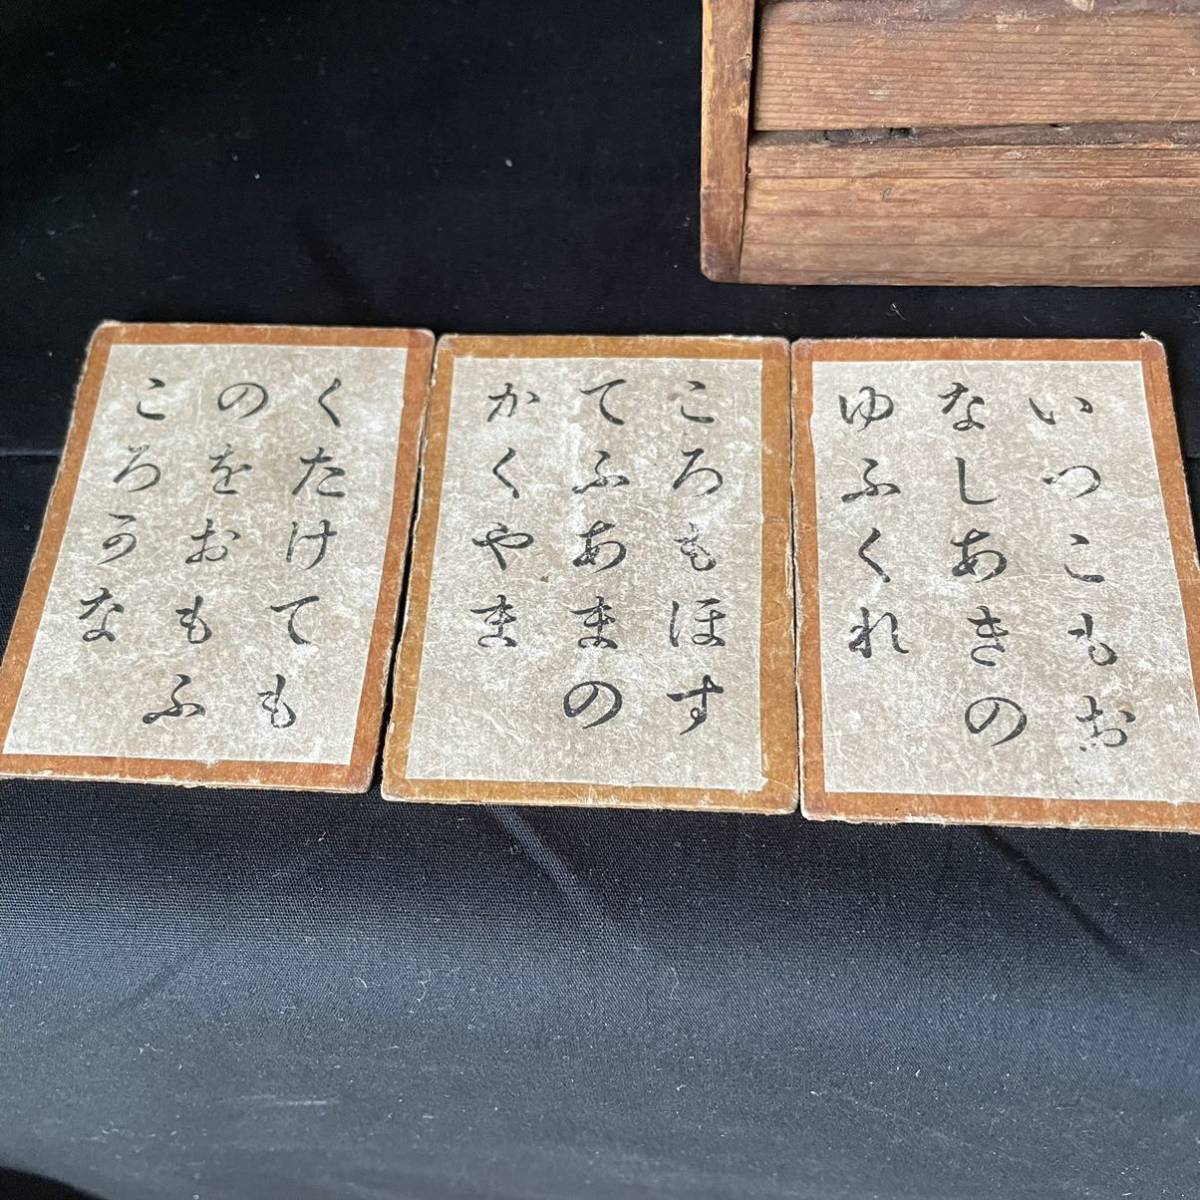 いつこもお
なしあきの
ゆふくれ
ころもほす
てふあまの
かくやま
くたけても
のをおもふ
ころかな